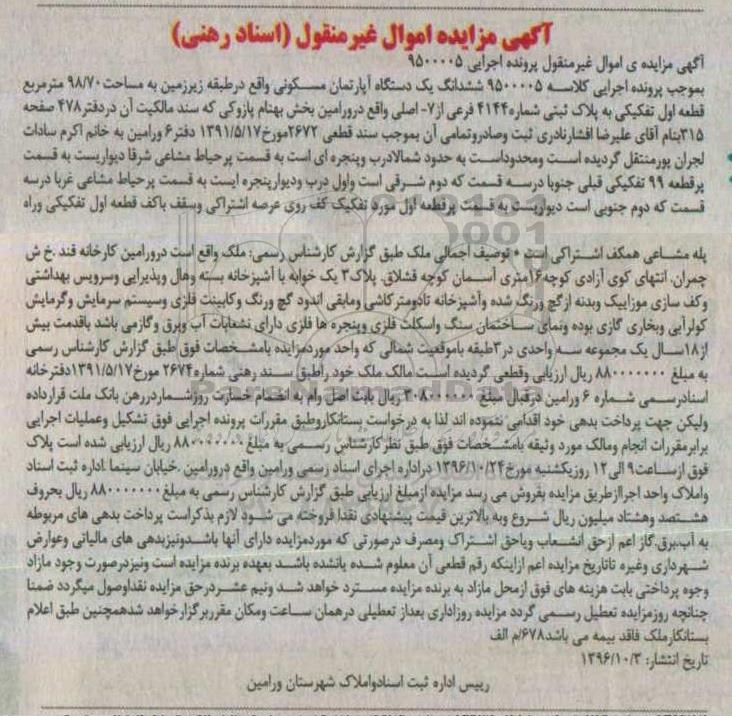 آگهی مزایده اموال غیرمنقول (اسناد رهنی)
آگهی مزایده ی اموال غیرمنقول پرونده اجرایی ۹۵۰۰۰۰۵
بموجب پرونده اجرایی کلاسه ۹۵۰۰۰۰۵ ششدانگ یک دستگاه آپارتمان مسکونی واقع درطبقه زیرزمین به مساحت۹۸/۷۰ مترمربع
قطعه اول تفکیکی به پلاک ثبتی شماره۴۱۴۴ فرعی از۷- اصلی واقع درورامین بخش بهنام پازوکی که سند مالکیت آن دردفتر۴۷۸ صفحه
۳۱۵بنام آقای علیرضا افشارنادری ثبت وصادروتمامی آن بموجب سند قطعی ۲۶۷۲مورخ۱۳۹۱/۵/۱۷ دفتر۶ ورامین به خانم اکرم سادات
لجران پورمنتقل گردیده است ومحدوداست به حدود شمالادرب وپنجره ای است به قسمت پرحیاط مشاعی شرقا دیواریست به قسمت
پرقطعه ۹۹ تفکیکی قبلی جنوبا درسه قسمت که دوم شرقی است واول درب ودیوارپنجره ایست به قسمت پرحیاط مشاعی غربا درسه
قسمت که دوم جنوبی است دیواریست به قسمت پرقطعه اول مورد تفکیک کف روی عرصه اشتراکی وسقف باکف قطعه اول تفکیکی وراه
پله مشاعی همکف اشتراکی است * توصیف اجمالی ملک طبق گزارش کارشناس رسمی: ملک واقع است درورامین کارخانه قند .خ ش
چمران. انتهای کوی آزادی کوچه۱۶متری آسمان کوچه قشلاق. پلاک۳ یک خوابه با آشپزخانه بسته وهال وپذیرایی وسرویس بهداشتی
وکف سازی موزاییک وبدنه ازگچ ورنگ شده وآشپزخانه تادومترکاشی ومابقی اندود گچ ورنگ وکابینت فلزی وسیستم سرمایش وگرمایش
کولرآبی وبخاری گازی بوده ونمای ساختمان سنگ واسکلت فلزی وپنجره ها فلزی دارای نشعابات آب وبرق وگازمی باشد باقدمت بیش
از۱۸سال یک مجموعه سه واحدی در۳طبقه باموقعیت شمالی که واحد موردمزایده بامشخصات فوق طبق گزارش کارشناس رسمی
به مبلغ ۸۸۰۰۰۰۰۰۰ ریال ارزیابی وقطعی گردیده است مالک ملک خود راطبق سند رهنی شماره۲۶۷۴ مورخ۱۳۹۱/۵/۱۷دفترخانه
اسنادرسمی شماره ۶ ورامین درقبال مبلغ ریال بابت اصل وام به انضمام خسارت روزشماردررهن بانک ملت قرارداده
ولیکن جهت پرداخت بدهی خود اقدامی ننموده اند لذا به درخواست بستانکاروطبق مقررات پرونده اجرایی فوق تشکیل وعملیات اجرایی
برابرمقررات انجام ومالک مورد وثیقه بامشخصات فوق طبق نظرکارشناس رسمی به مبلغ ۸۸۰۰۰۰۰۰۰ ریال ارزیابی شده است پلاک
فوق ازساعت۹ الی۱۲ روزیکشنبه مورخ۱۳۹۶/۱۰/۲۴ دراداره اجرای اسناد رسمی ورامین واقع درورامین .خیابان سینما .اداره ثبت اسناد
واملاک واحد اجراازطریق مزایده بفروش می رسد مزایده ازمبلغ ارزیابی طبق گزارش کارشناس رسمی به مبلغ ۸۸۰۰۰۰۰۰۰ ریال بحروف
هشتصد وهشتاد میلیون ریال شروع وبه بالاترین قیمت پیشنهادی نقدا فروخته می شود لازم بذکراست پرداخت بدهی های مربوطه
به آب.برق.گاز اعم ازحق انشعاب ویاحق اشتراک ومصرف درصورتی که موردمزایده دارای آنها باشدونیزبدهی های مالیاتی وعوارض
شهرداری وغیره تاتاریخ مزایده اعم ازاینکه رقم قطعی آن معلوم شده یانشده باشد بعهده برنده مزایده است ونیزدرصورت وجود مازاد
وجوه پرداختی بابت هزینه های فوق ازمحل مازاد به برنده مزایده مسترد خواهد شد ونیم عشردرحق مزایده نقداوصول میگردد ضمنا
چنانچه روزمزایده تعطیل رسمی گردد مزایده روزاداری بعداز تعطیلی درهمان ساعت ومکان مقرربرگزارخواهد شدهمچنین طبق اعلام
بستانکارملک فاقد بیمه می باشد۶۷۸/م الف
تاریخ انتشار: ۱۳۹۶/۱۰/۳
رییس اداره ثبت اسنادواملاک شهرستان ورامین